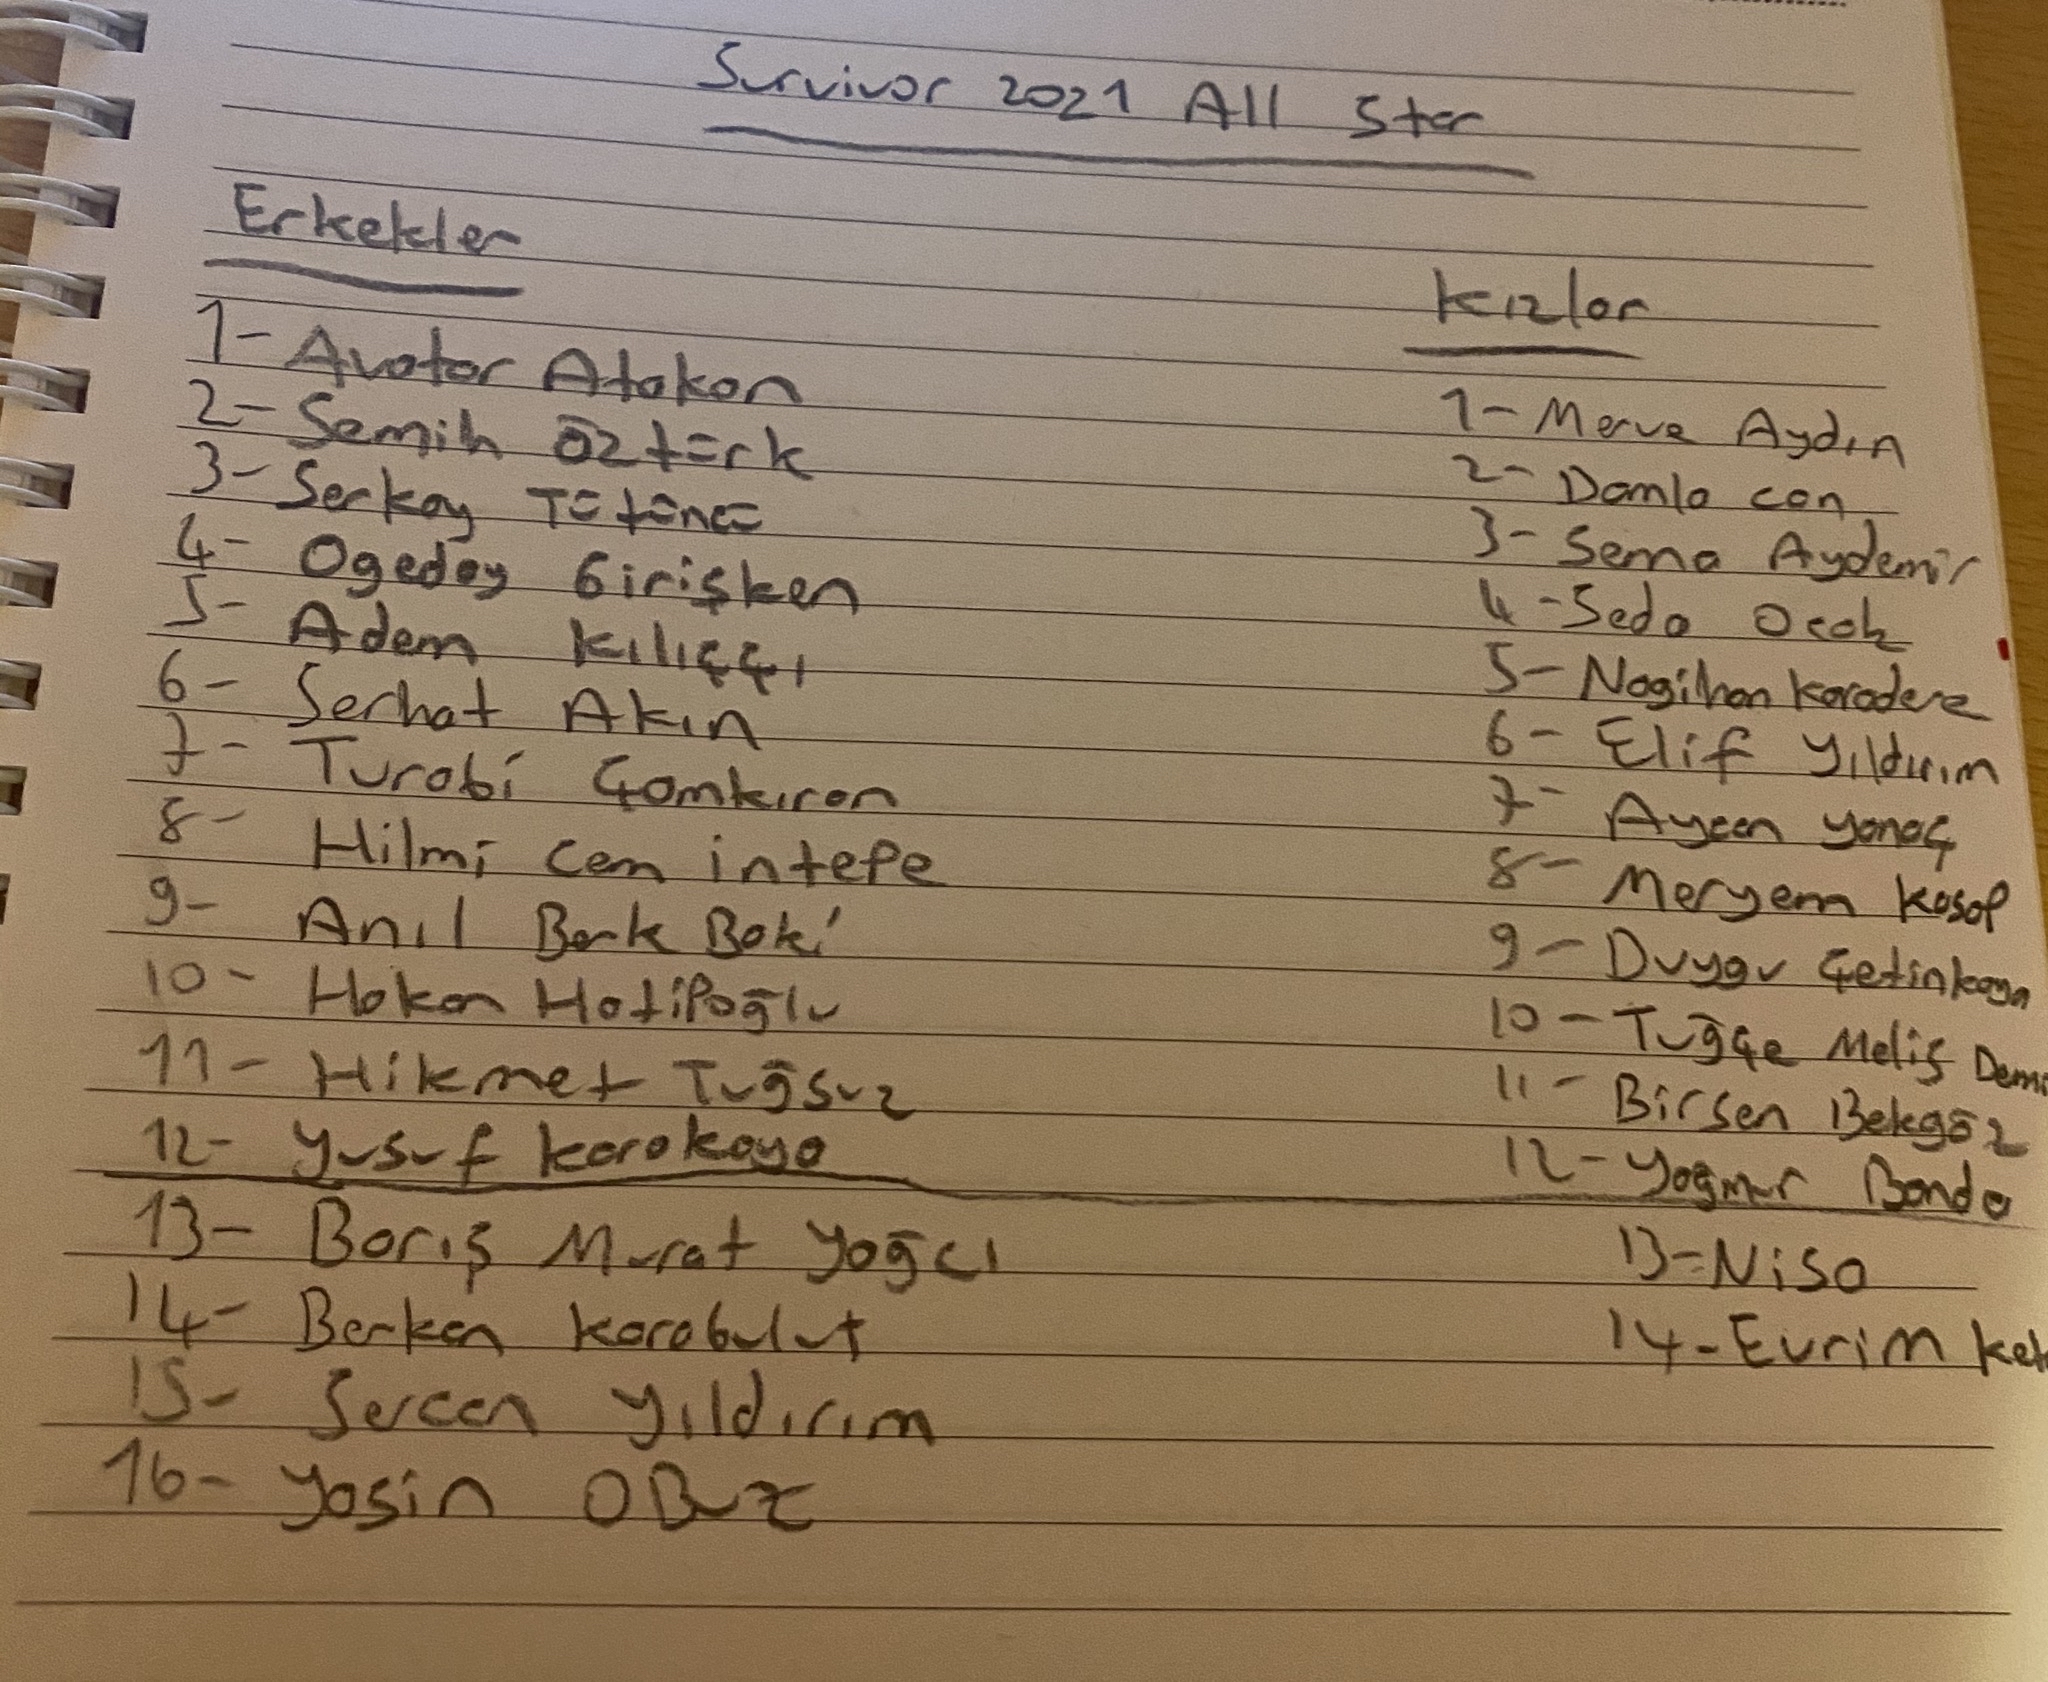 Survivor 2021 All Star
Erkekler
1- Avatar Atakan
2- Semih Öztürk
3- Serkay Tütüncü
4- Ogeday Girişken
5- Adem Kılıççı
6- Serhat Akın
7- Turabi Çamkıran
8- Hilmi Cem intepe
9- Anıl Berk Baki
10- Hakan Hatipoğlu
11- Hikmet Tuğsuz
12- Yusuf Karakaya
13- Barış Murat Yağcı
14- Berkan Karabulut
15- Sercan Yıldırım
16- Yasin OBuz
Kızlar
1- Merve Aydın
2- Damla Can
3- Sema Aydemir
4- Seda Ocak
5- Nagihan Karadere
6- Elif Yıldırım
7- Aycan Yanaç
8- Meryem Kasap
9- Duygu Çetinkaya
10- Tuğçe Meliş Demi
11- Birsen Bekgöz
12- Yağmur Banda
13- Nisa
14- Evrim Kek